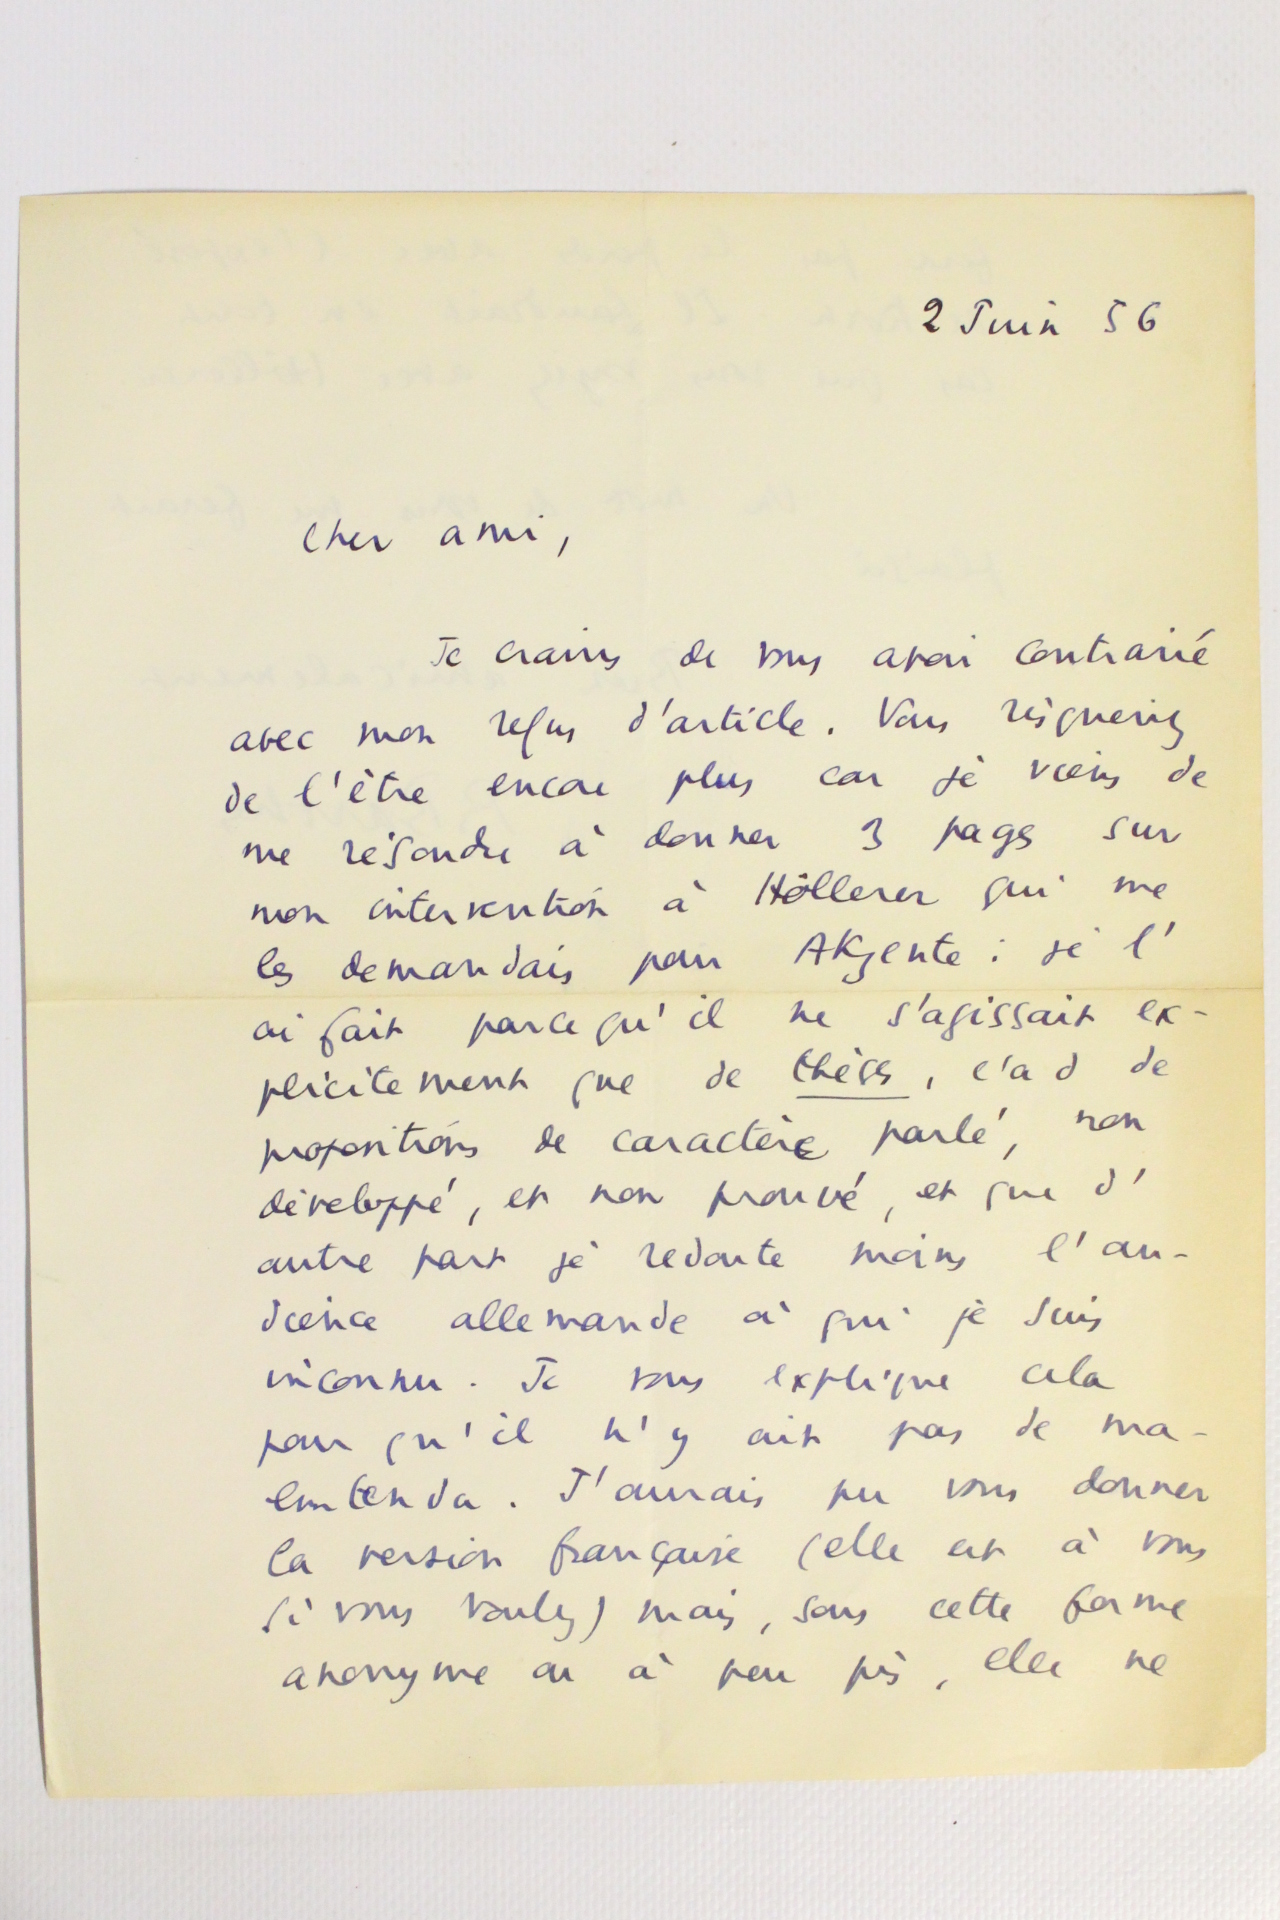 2 Juin 56
Cher ami,
Je crains de vous avoir contrarié
avec mon refus d'article. Vous risqueriez
de l'être encore plus car je viens de
me résoudre à donner 3 pages sur
mon intervention à Höllerer qui me
les demandais pour AKzente : je l'
ai fait parcequ'il ne s'agissait ex-
plicitement que de thèses, c'a d de
propositions de caractère parlé, non
développé, et non prouvé, et que d'
autre part je redoute moins l'au-
dience allemande à qui je suis
inconnu. Je vous explique cela
pour qu'il n'y ait pas de ma-
lentendu. J'aurais pu vous donner
la version française (elle est à vous
si vous voulez) mais, sous cette forme
anonyme ou à peu près, elle ne